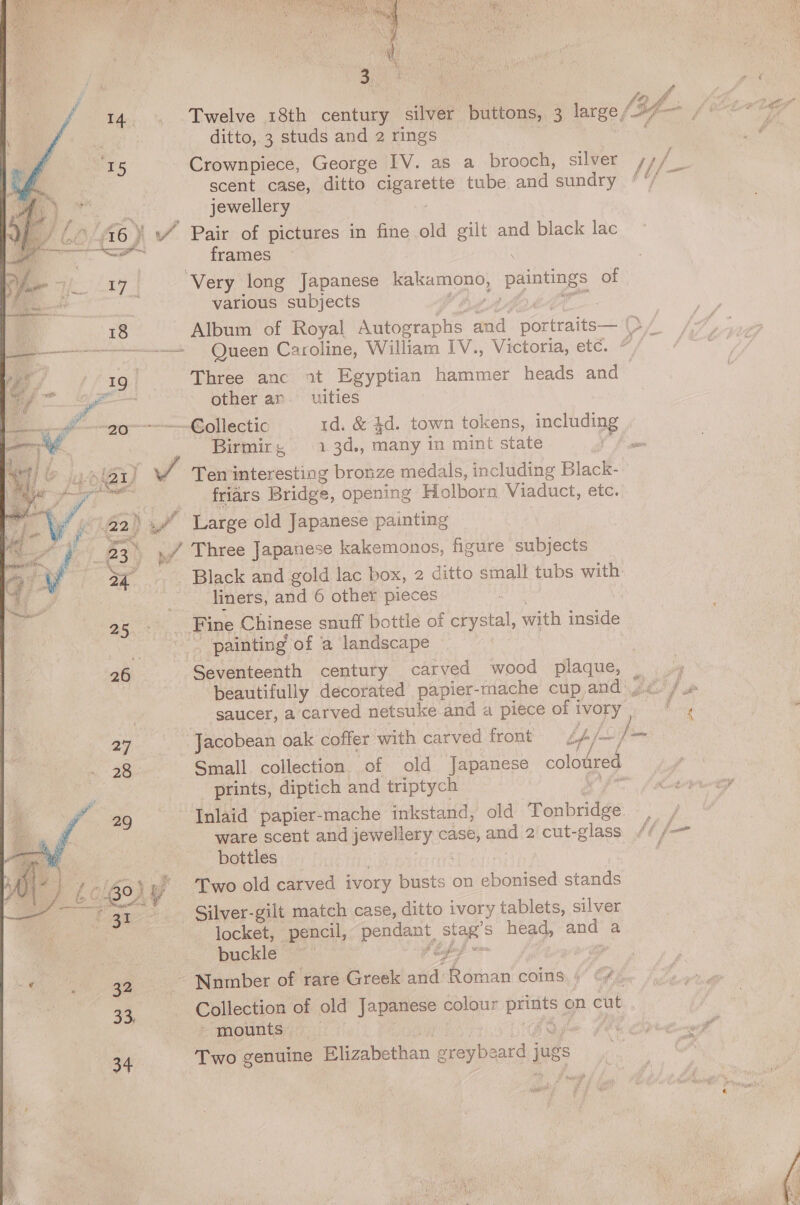 3
14 Twelve 18th century silver buttons, 3 large
ditto, 3 studs and 2 rings
15 Crownpiece, George IV. as a brooch, silver
scent case, ditto cigarette tube and sundry
jewellery
16 Pair of pictures in fine old gilt and black lac
frames
17 Very long Japanese kakamono, paintings of
various subjects
18 Album of Royal Autographs and portraits—
Queen Caroline, William IV., Victoria, etc.
19 Three anc nt Egyptian hammer heads and
other an uities
20 Collectic 1d. & ½d. town tokens, including
Birmir 1 3d., many in mint state
21 Ten interesting bronze medals, including Black-
friars Bridge, opening Holborn Viaduct, etc.
22 Large old Japanese painting
23 Three Japanese kakemonos, figure subjects
24 Black and gold lac box, 2 ditto small tubs with
liners, and 6 other pieces
25 Fine Chinese snuff bottle of crystal, with inside
painting of a landscape
26 Seventeenth century carved wood plaque,
beautifully decorated papier-mache cup and
saucer, a carved netsuke and a piece of ivory
27 Jacobean oak coffer with carved front
28 Small collection of old Japanese coloured
prints, diptich and triptych
29 Inlaid papier-mache inkstand, old Tonbridge
ware scent and jewellery case, and 2 cut-glass
bottles
30 Two old carved ivory busts on ebonised stands
31 Silver-gilt match case, ditto ivory tablets, silver
locket, pencil, pendant stag's head, and a
buckle
32 Nnmber of rare Greek and Roman coins
33 Collection of old Japanese colour prints on cut
mounts
34 Two genuine Elizabethan greybeard jugs